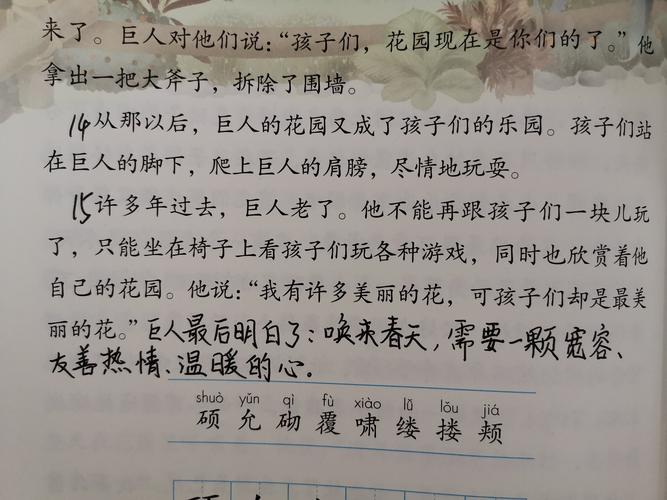 来了。巨人对他们说：“孩子们，花园现在是你们的了。”他
拿出一把大斧子，拆除了围墙。
14从那以后，巨人的花园又成了孩子们的乐园。孩子们站
在巨人的脚下，爬上巨人的肩膀，尽情地玩耍。
15许多年过去，巨人老了。他不能再跟孩子们一块儿玩
了，只能坐在椅子上看孩子们玩各种游戏，同时也欣赏着他
自己的花园。他说：“我有许多美丽的花，可孩子们却是最美
丽的花。”巨人最后明白了：唤来春天，需要一颗宽容、
友善热情、温暖的心.
shuò yǔn qì fù xiào lǚ lǒu jiá
硕 允 砌 覆 啸 缕 搂 颊